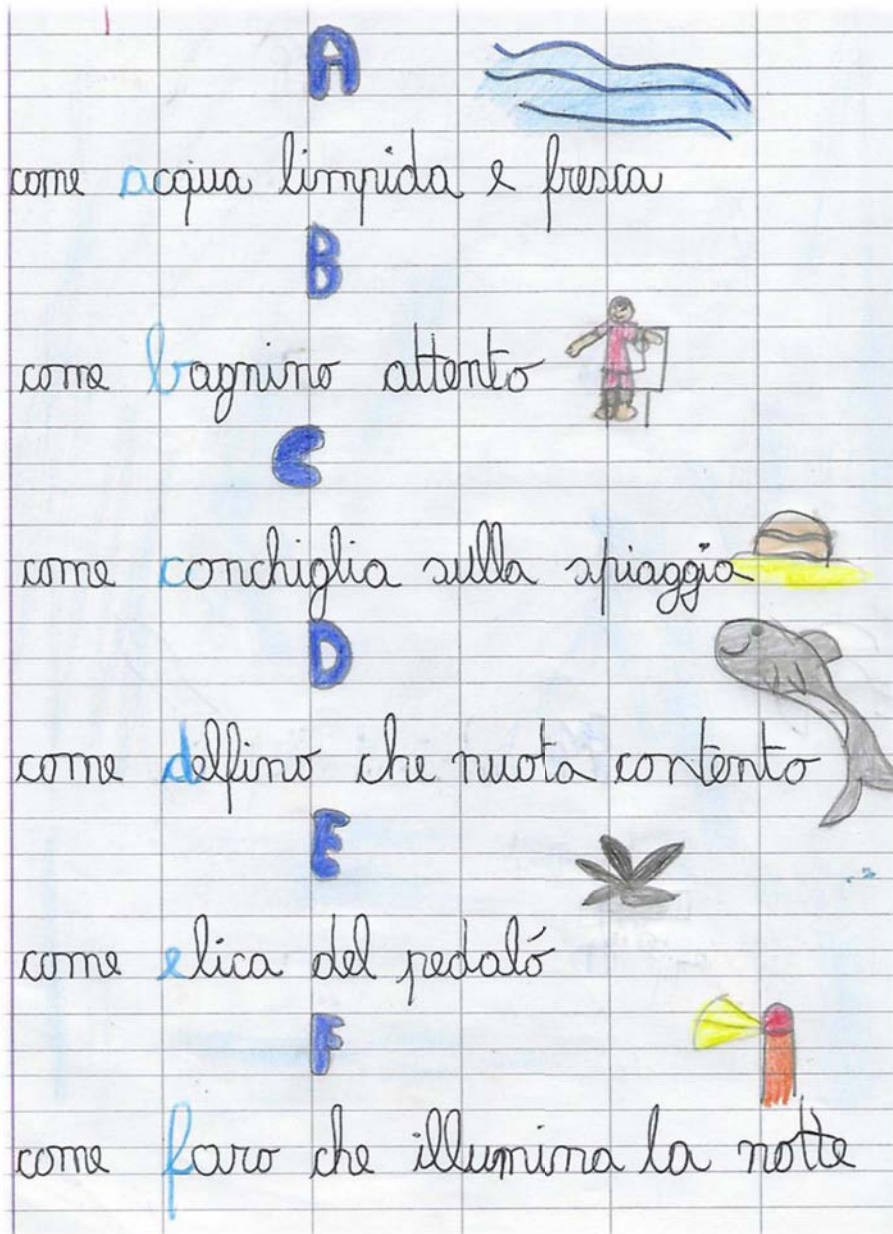 A
come acqua limpida e fresca
B
come bagnino attento
C
come conchiglia sulla spiaggia
D
come delfino che nuota contento
E
come elica del pedaló
F
come faro che illumina la notte